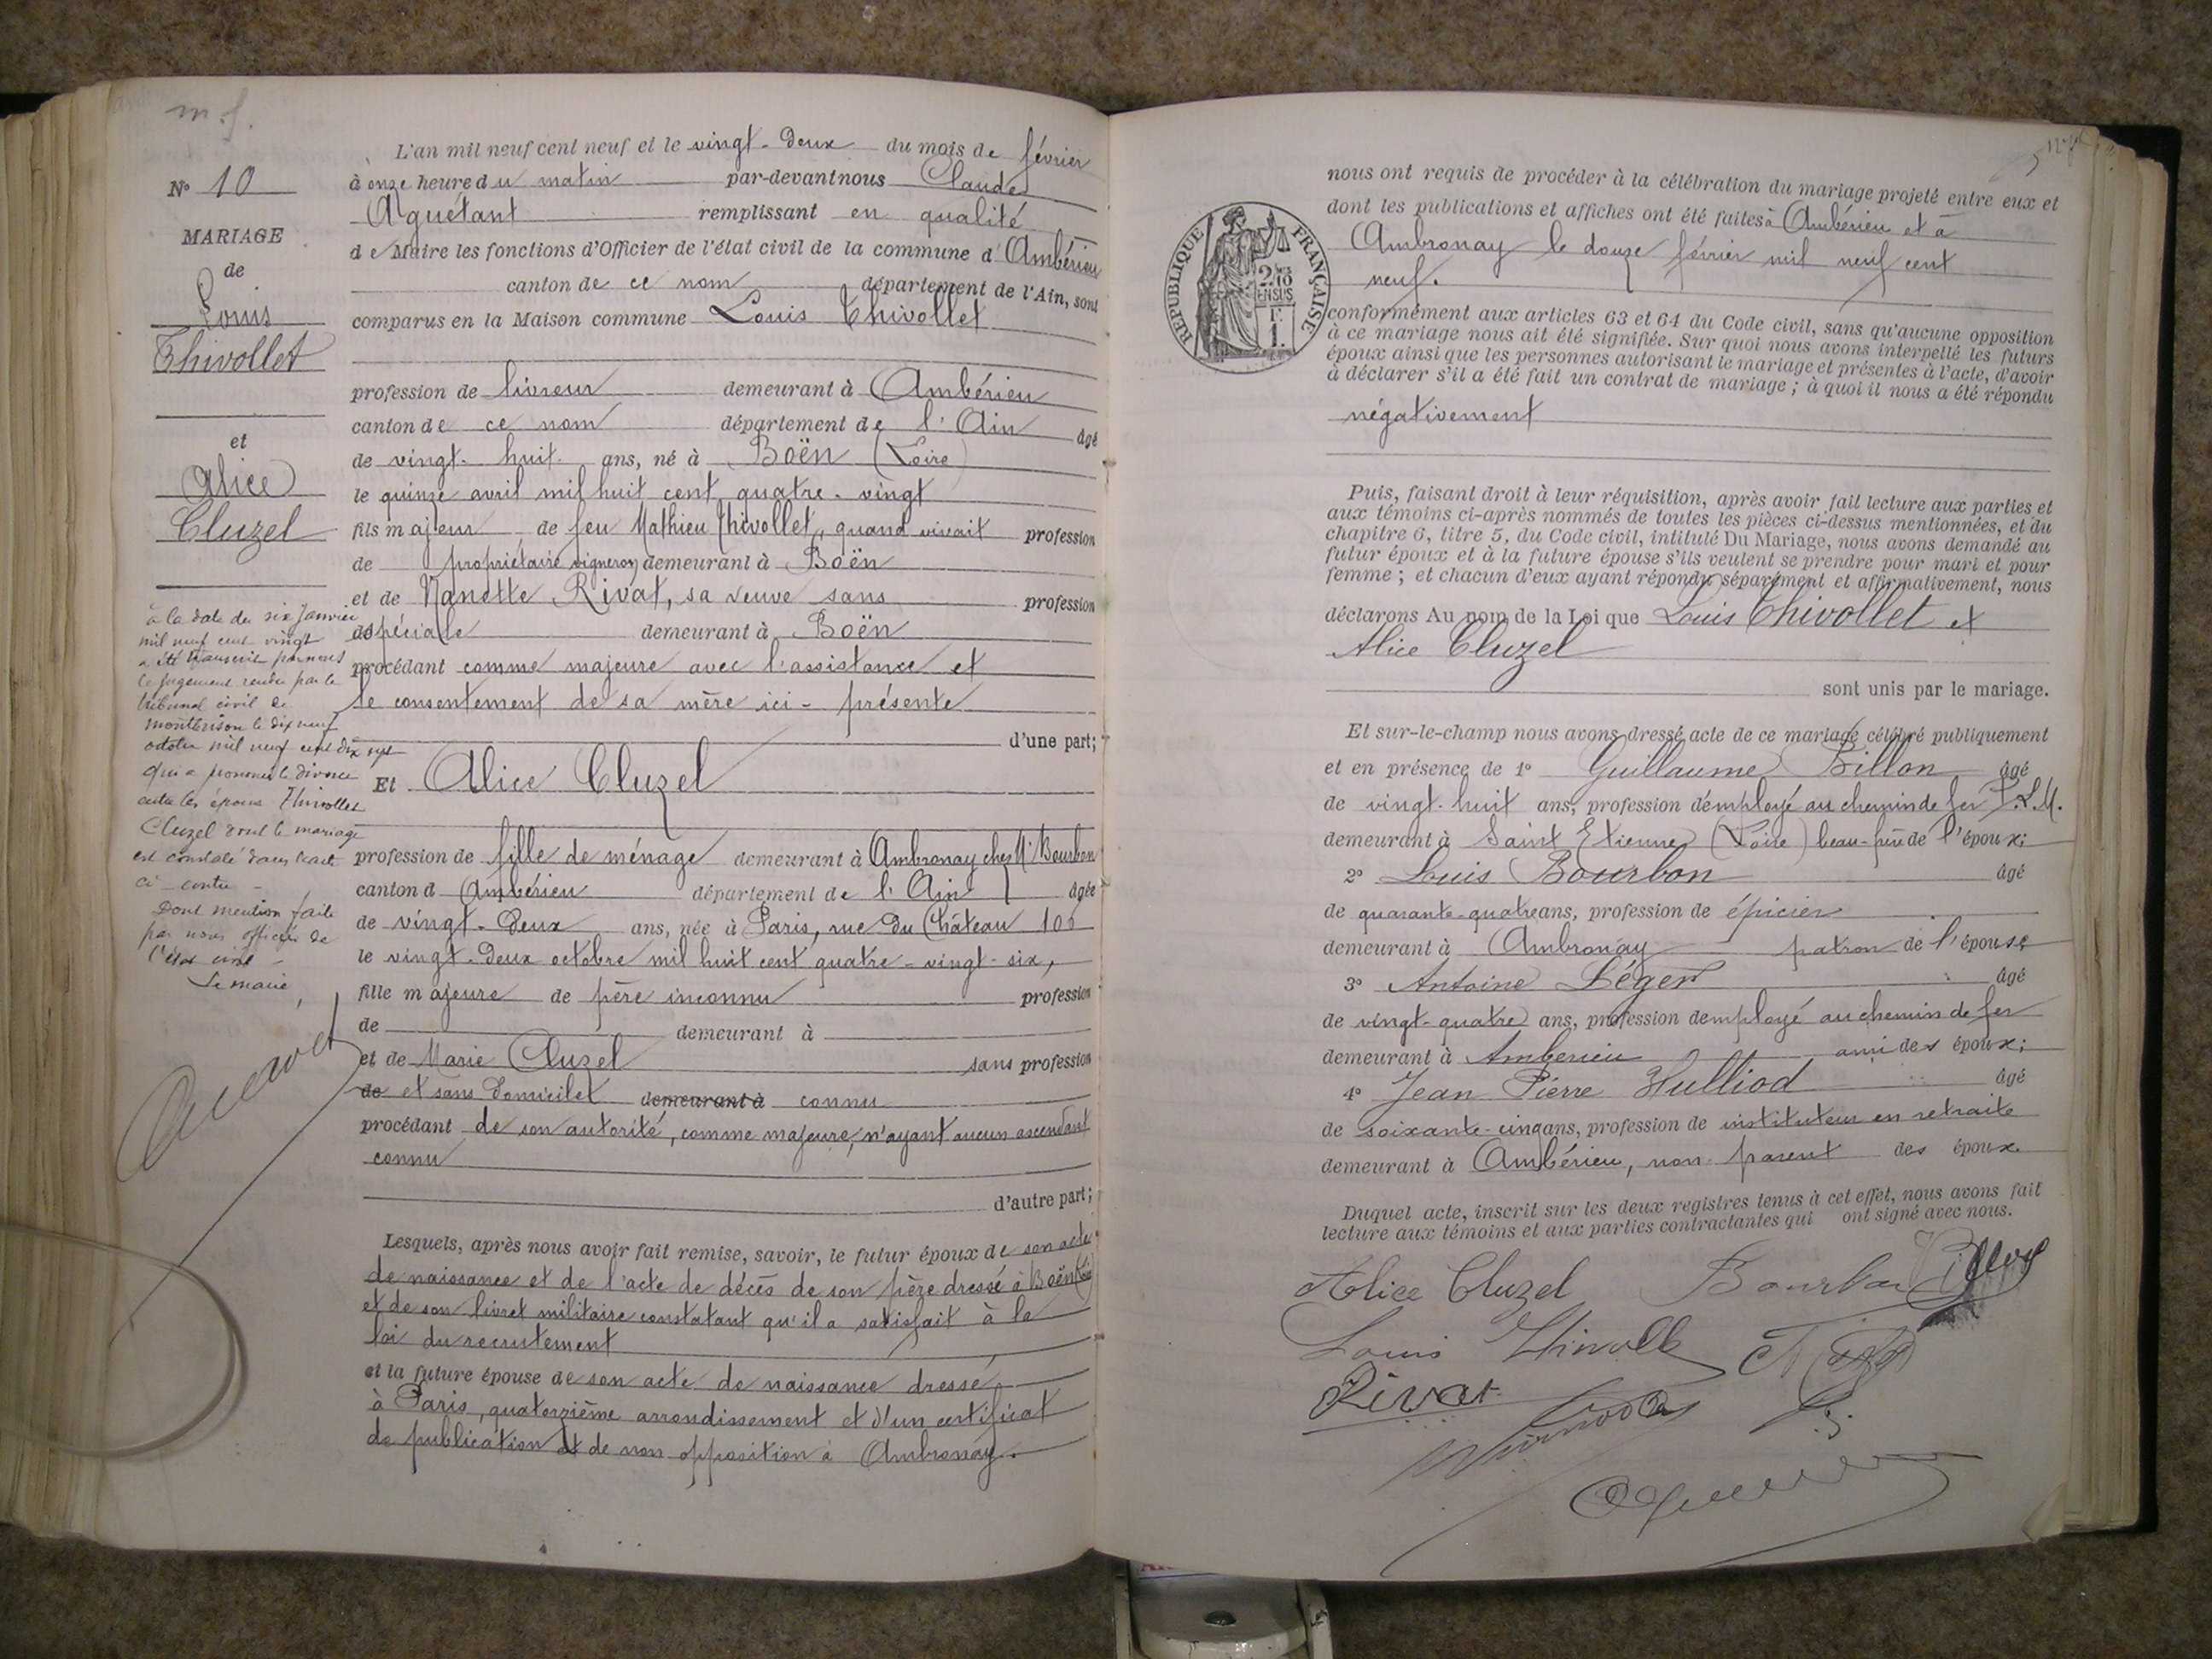 m.f.
N° 10
MARIAGE
de
Louis
Thivollet
et
Alice
Cluzel
à la date du six Janvier
mil neuf cent vingt
a été transcrit par nous
le jugement rendu par le
tribunal civil de
Montbrison le dix neuf
octobre mil neuf cent dix sept
qui a prononcé le divorce
entre les époux Thivollet
Cluzel dont le mariage
est constaté dans l'acte
ci-contre -
Dont mention faite
par nous officier de
l'état civil -
Le maire,
L'an mil neuf cent neuf et le vingt-deux du mois de février
à onze heure du matin par-devant nous Claude
Aguétant remplissant en qualité
de Maire les fonctions d'Officier de l'état civil de la commune d'Ambérieu
canton de ce nom département de l'Ain, sont
comparus en la Maison commune Louis Thivollet
profession de livreur demeurant à Ambérieu
canton de ce nom département de l'Ain âgé
de vingt-huit ans, né à Boën (Loire)
le quinze avril mil huit cent quatre-vingt
fils majeur de feu Mathieu Thivollet, quand vivait profession
de propriétaire vigneron demeurant à Boën
et de Nanette Rivat, sa veuve sans profession
spéciale demeurant à Boën
procédant comme majeure avec l'assistance et
le consentement de sa mère ici-présente
d'une part;
Et Alice Cluzel
profession de fille de ménage demeurant à Ambronay chez Mr Bourbon
canton d Ambérieu département de l'Ain âgée
de vingt-deux ans, née à Paris, rue du Château 106
le vingt-deux octobre mil huit cent quatre-vingt-six,
fille majeure de père inconnu profession
de demeurant à
et de Marie Cluzel sans profession
de et sans domicile demeurant à connu
procédant de son autorité, comme majeure, n'ayant aucun ascendant
connu
d'autre part;
Lesquels, après nous avoir fait remise, savoir, le futur époux de son acte
de naissance et de l'acte de décès de son père dressé à Boën (Loire)
et de son livret militaire constatant qu'il a satisfait à la
loi du recrutement
et la future épouse de son acte de naissance dressé
à Paris, quatorzième arrondissement et d'un certificat
de publication et de non opposition à Ambronay.
RÉPUBLIQUE FRANÇAISE
2/10 ENSUS
F. 1.
nous ont requis de procéder à la célébration du mariage projeté entre eux et
dont les publications et affiches ont été faites à Ambérieu et à
Ambronay le douze février mil neuf cent
neuf.
conformément aux articles 63 et 64 du Code civil, sans qu'aucune opposition
à ce mariage nous ait été signifiée. Sur quoi nous avons interpellé les futurs
époux ainsi que les personnes autorisant le mariage et présentes à l'acte, d'avoir
à déclarer s'il a été fait un contrat de mariage; à quoi il nous a été répondu
négativement
Puis, faisant droit à leur réquisition, après avoir fait lecture aux parties et
aux témoins ci-après nommés de toutes les pièces ci-dessus mentionnées, et du
chapitre 6, titre 5, du Code civil, intitulé Du Mariage, nous avons demandé au
futur époux et à la future épouse s'ils veulent se prendre pour mari et pour
femme; et chacun d'eux ayant répondu séparément et affirmativement, nous
déclarons Au nom de la Loi que Louis Thivollet et
Alice Cluzel
sont unis par le mariage.
Et sur-le-champ nous avons dressé acte de ce mariage célébré publiquement
et en présence de 1° Guillaume Billon âgé
de vingt-huit ans, profession d'employé au chemin de fer P.L.M.
demeurant à Saint Etienne (Loire) beau-frère de l'époux;
2° Louis Bourbon âgé
de quarante-quatre ans, profession de épicier
demeurant à Ambronay patron de l'épouse
3° Antoine Léger âgé
de vingt-quatre ans, profession d'employé au chemin de fer
demeurant à Ambérieu ami des époux;
4° Jean Pierre Hulliod âgé
de soixante-cinq ans, profession de instituteur en retraite
demeurant à Ambérieu, non parent des époux.
Duquel acte, inscrit sur les deux registres tenus à cet effet, nous avons fait
lecture aux témoins et aux parties contractantes qui ont signé avec nous.
Alice Cluzel Bourbon Billon
Louis Thivolle
Rivat